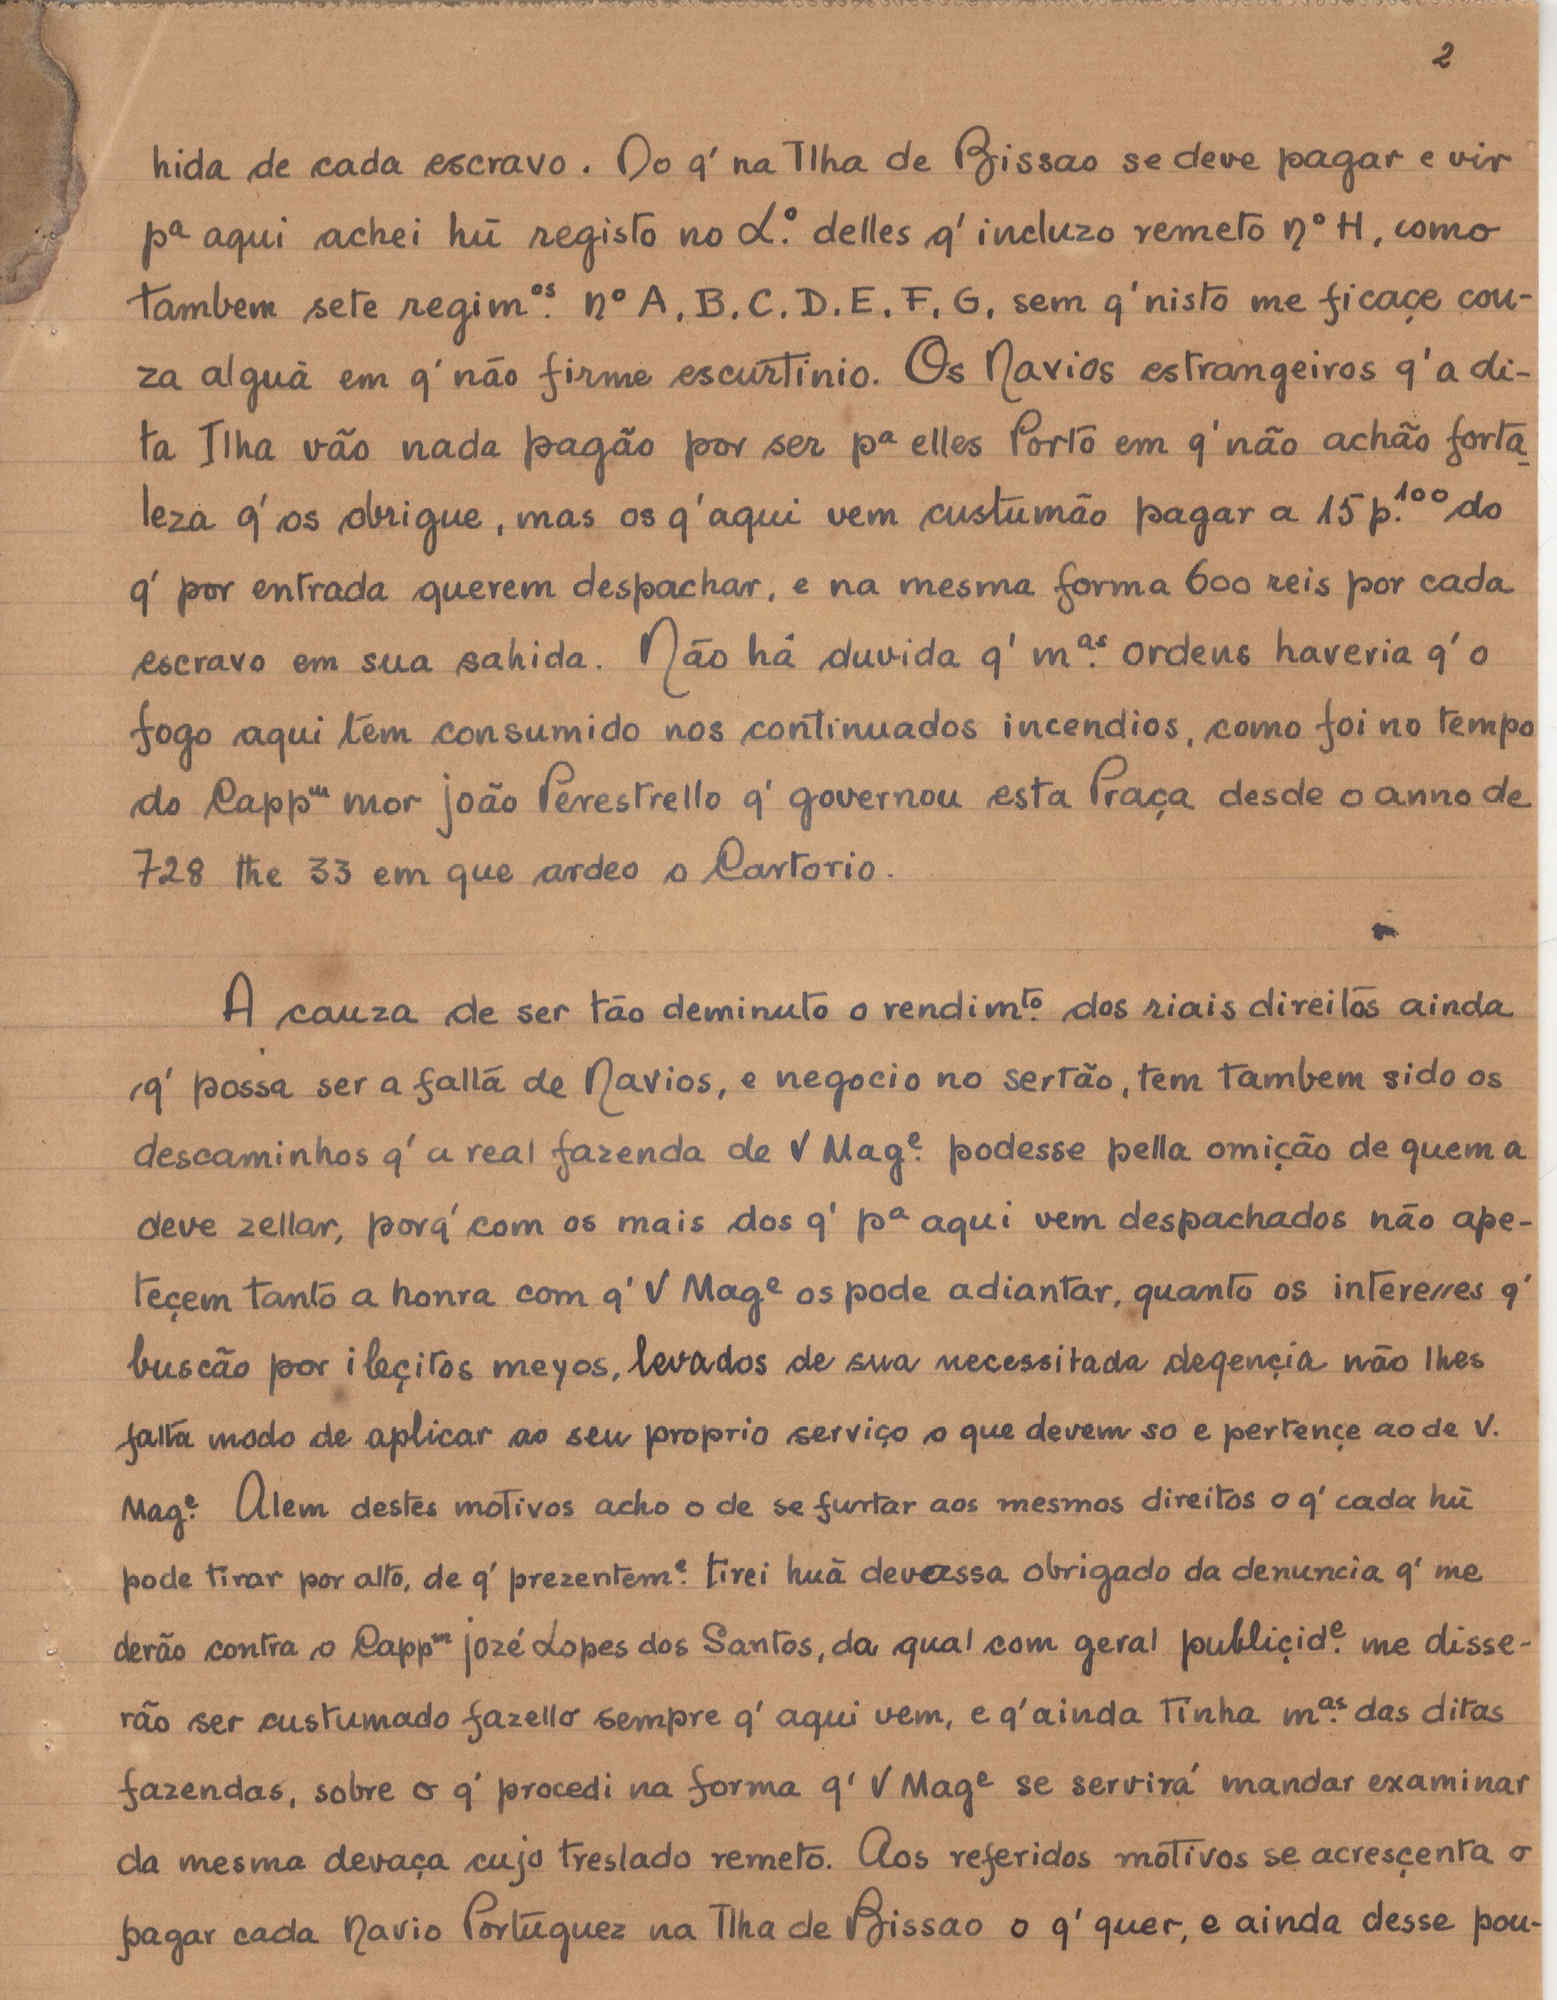 2
hida de cada escravo. Do q' na Ilha de Bissao se deve pagar e vir
pª aqui achei hũ registo no L.º delles q' incluzo remeto nº H, como
tambem sete regim.ºˢ nº A, B, C, D, E, F, G, sem q' nisto me ficaçe cou-
za alguã em q' não firme escurtinio. Os Navios estrangeiros q' a di-
ta Ilha vão nada pagão por ser pª elles Porto em q' não achão forta
leza q' os obrigue, mas os q' aqui vem custumão pagar a 15 p.¹⁰⁰ do
q' por entrada querem despachar, e na mesma forma 600 reis por cada
escravo em sua sahida. Não há duvida q' m.ªˢ ordens haveria q' o
fogo aqui tem consumido nos continuados incendios, como foi no tempo
do Cappᵐ mor joão Perestrello q' governou esta Praça desde o anno de
728 the 33 em que ardeo o Cartorio.
A cauza de ser tão deminuto o rendim.ᵗᵒ dos riais direitos ainda
q' possa ser a falta de Navios, e negocio no sertão, tem tambem sido os
descaminhos q' a real fazenda de V Mag.ᵉ podesse pella omição de quem a
deve zellar, porq' com os mais dos q' pª aqui vem despachados não ape-
teçem tanto a honra com q' V Magᵉ os pode adiantar, quanto os interesses q'
buscão por ileçitos meyos, levados de sua necessitada deqençia não lhes
falta modo de aplicar ao seu proprio serviço o que devem so e pertençe ao de V.
Mag.ᵉ Alem destes motivos acho o de se furtar aos mesmos direitos o q' cada hũ
pode tirar por alto, de q' prezentem.ᵉ tirei huã devassa obrigado da denuncia q' me
derão contra o Cappᵐ jozé Lopes dos Santos, da qual com geral publiçid.ᵉ me disse-
rão ser custumado fazello sempre q' aqui vem, e q' ainda tinha m.ªˢ das ditas
fazendas, sobre o q' procedi na forma q' V Magᵉ se servirá mandar examinar
da mesma devaça cujo treslado remeto. Aos referidos motivos se acresçenta o
pagar cada Navio Portuguez na Ilha de Bissao o q' quer, e ainda desse pou-